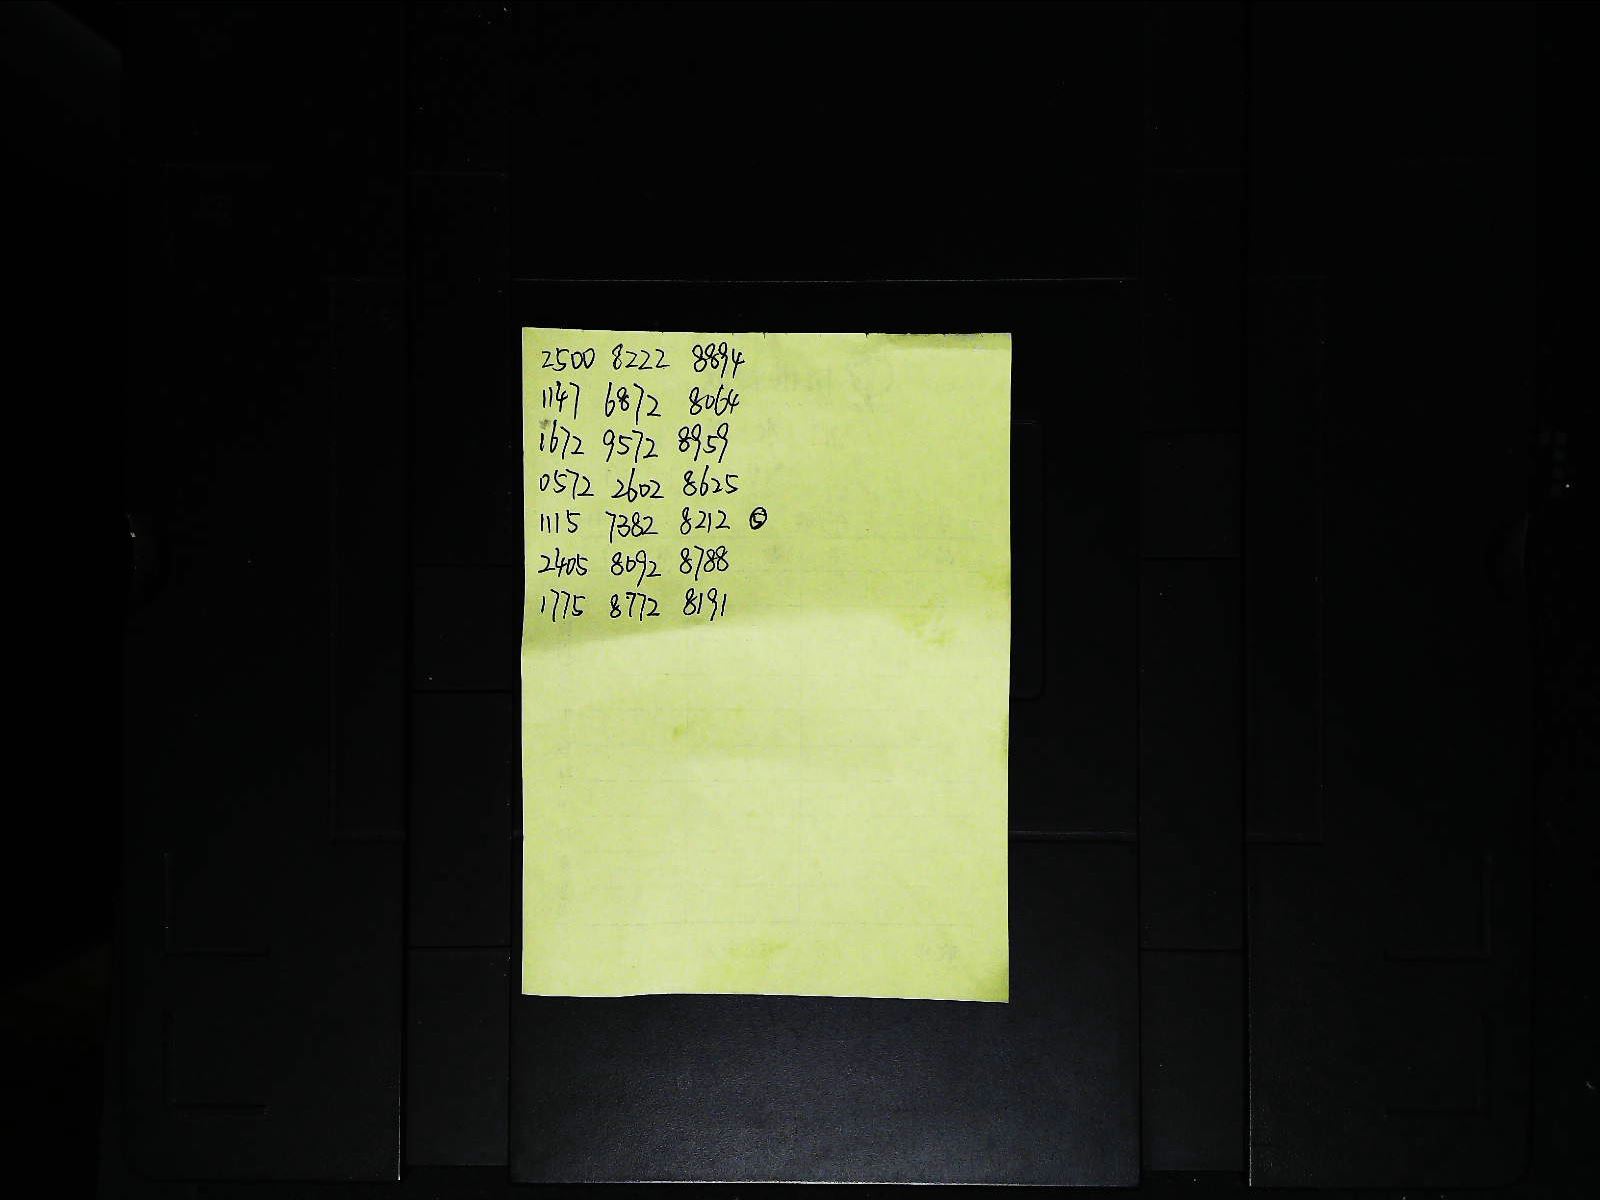 2500 8222 8894
1147 6872 8064
1672 9572 8959
0572 2602 8625
1115 7382 8212 ⑤
2405 8092 8788
1775 8772 8191